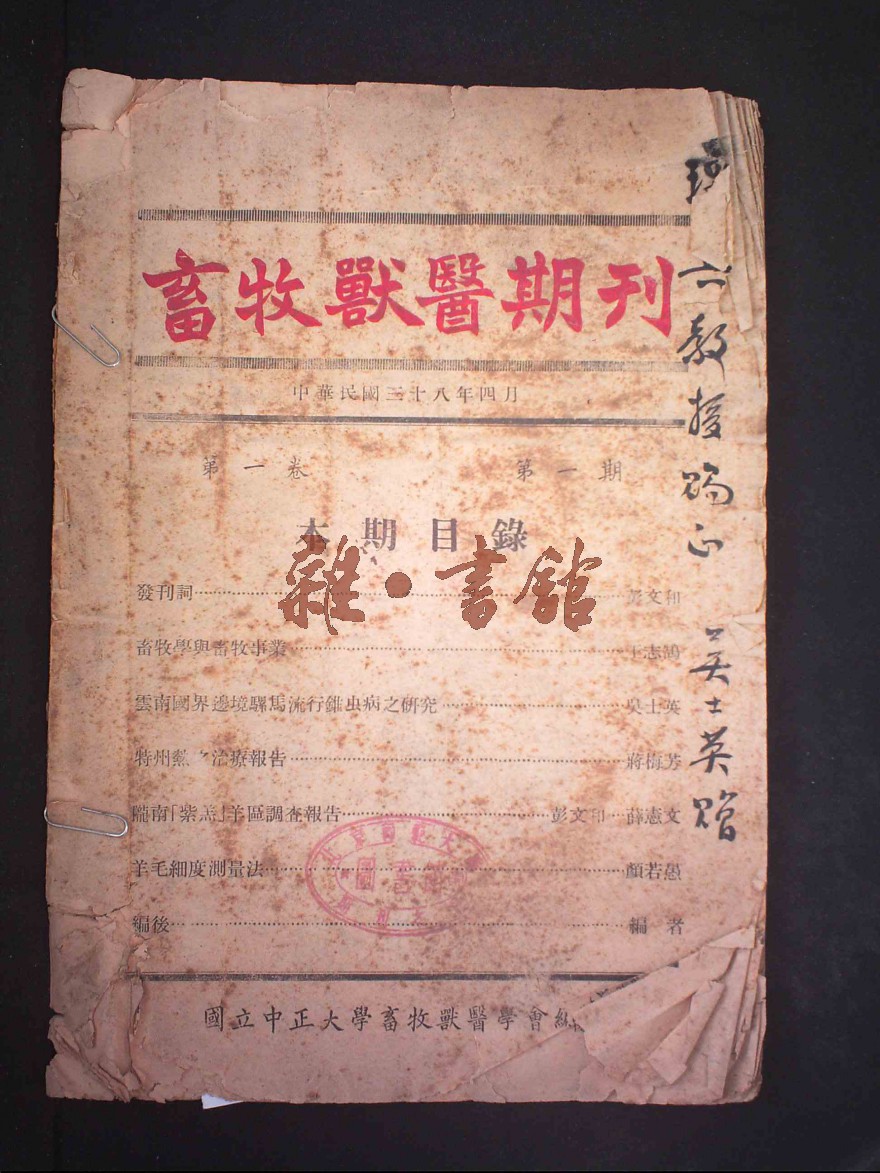 畜牧獸醫期刊
中華民國三十八年四月
第一卷 第一期
本期目錄
發刊詞 彭文和
畜牧學與畜牧事業 王志鴻
雲南國界邊境騾馬流行錐虫病之研究 吳士英
特州 治療報告 蔣梅芳
隴南「紫羔」羊區調查報告 彭文和 薛憲文
羊毛細度測量法 顏若愚
編後 編者
國立中正大學畜牧獸醫學會編
教授賜正 吳士英贈
雜·書館
圖書